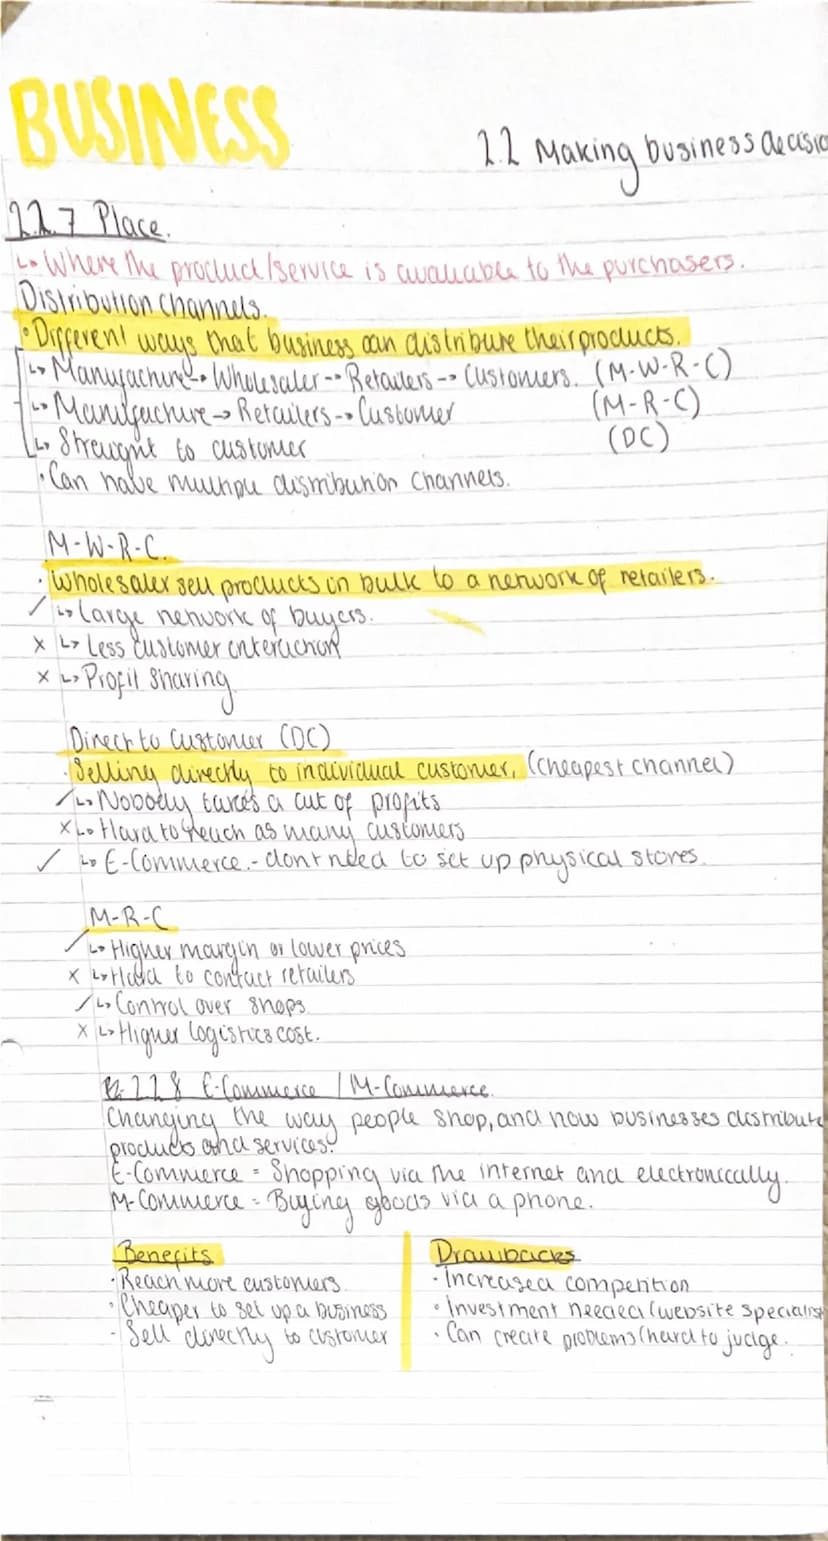 BUSINESS
2.2 Making business decisio
2.2.7 Place.
↳ Where the product/service is available to the purchasers.
Distribution channels.
• Different ways that business can distribute their products.
↳ Manufacture → Wholesaler → Retailers → Customers. (M-W-R-C)
↳ Manufacture → Retailers → Customer (M-R-C)
↳ Straight to customer (DC)
• Can have multiple distribution channels.
M-W-R-C.
• Wholesaler sell products in bulk to a network of retailers.
✓ ↳ Large network of buyers.
x ↳ Less customer interaction
x ↳ Profit sharing
Direct to Customer (DC)
• Selling directly to individual customer, (cheapest channel)
✓ ↳ Nobody takes a cut of profits
x ↳ Hard to reach as many customers
✓ ↳ E-Commerce - dont need to set up physical stores.
M-R-C
✓ ↳ Higher margin or lower prices
x ↳ Hard to contact retailers
✓ ↳ Control over shops
x ↳ Higher logistics cost.
2.2.8 E-Commerce / M-Commerce.
Changing the way people shop, and how businesses distribute
products and services.
E-Commerce = Shopping via the internet and electronically.
M-Commerce = Buying goods via a phone.
Benefits
• Reach more customers.
• Cheaper to set up a business
- Sell directly to customer
Drawbacks
• Increased competition
• Investment needed (website specialist
• Can create problems (hard to judge.